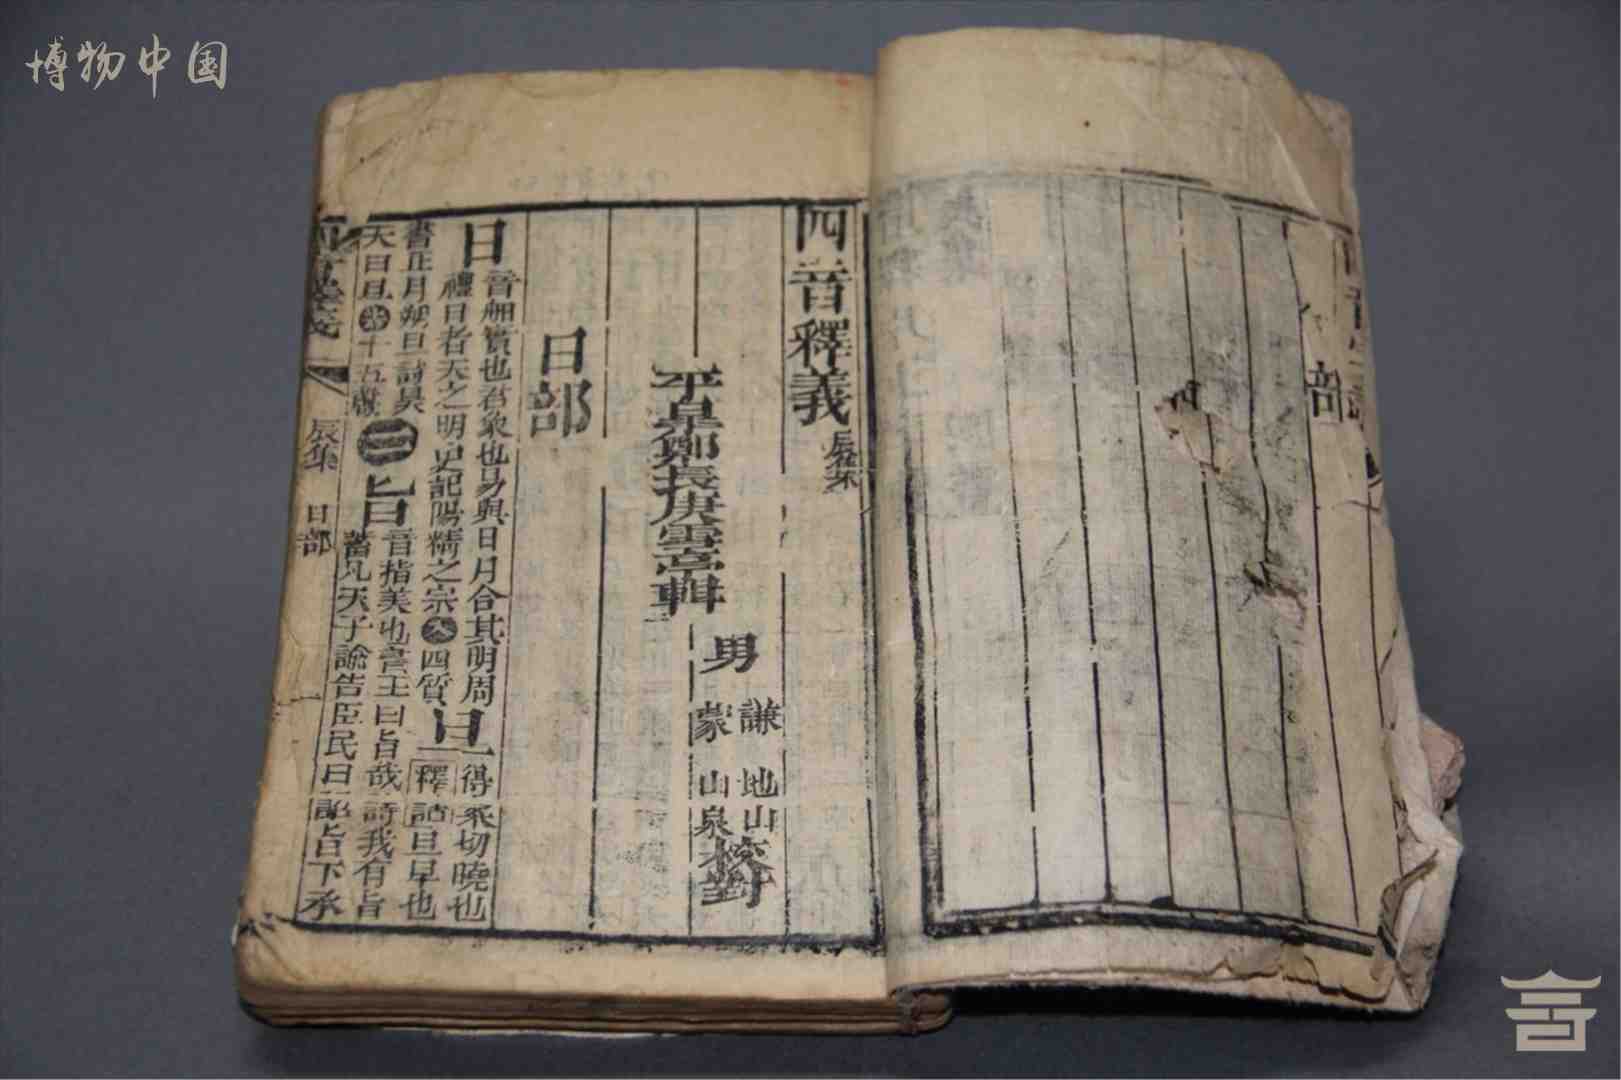 博物中国
四音釋義 辰集
平泉鄭長庚雪亭輯
男 謙 地山 蒙 山泉 校對
日部
日 音衵實也君象也易與日月合其明周
禮日者天之明史記陽精之宗入四質 旦 得爛切曉也
釋詁旦早也
書正月朔旦詩昊
天曰旦 十五翰 二 旨 音指美也書王曰旨哉詩我有旨
蓄凡天子諭告臣民曰詔旨下承
辰集 日部
部